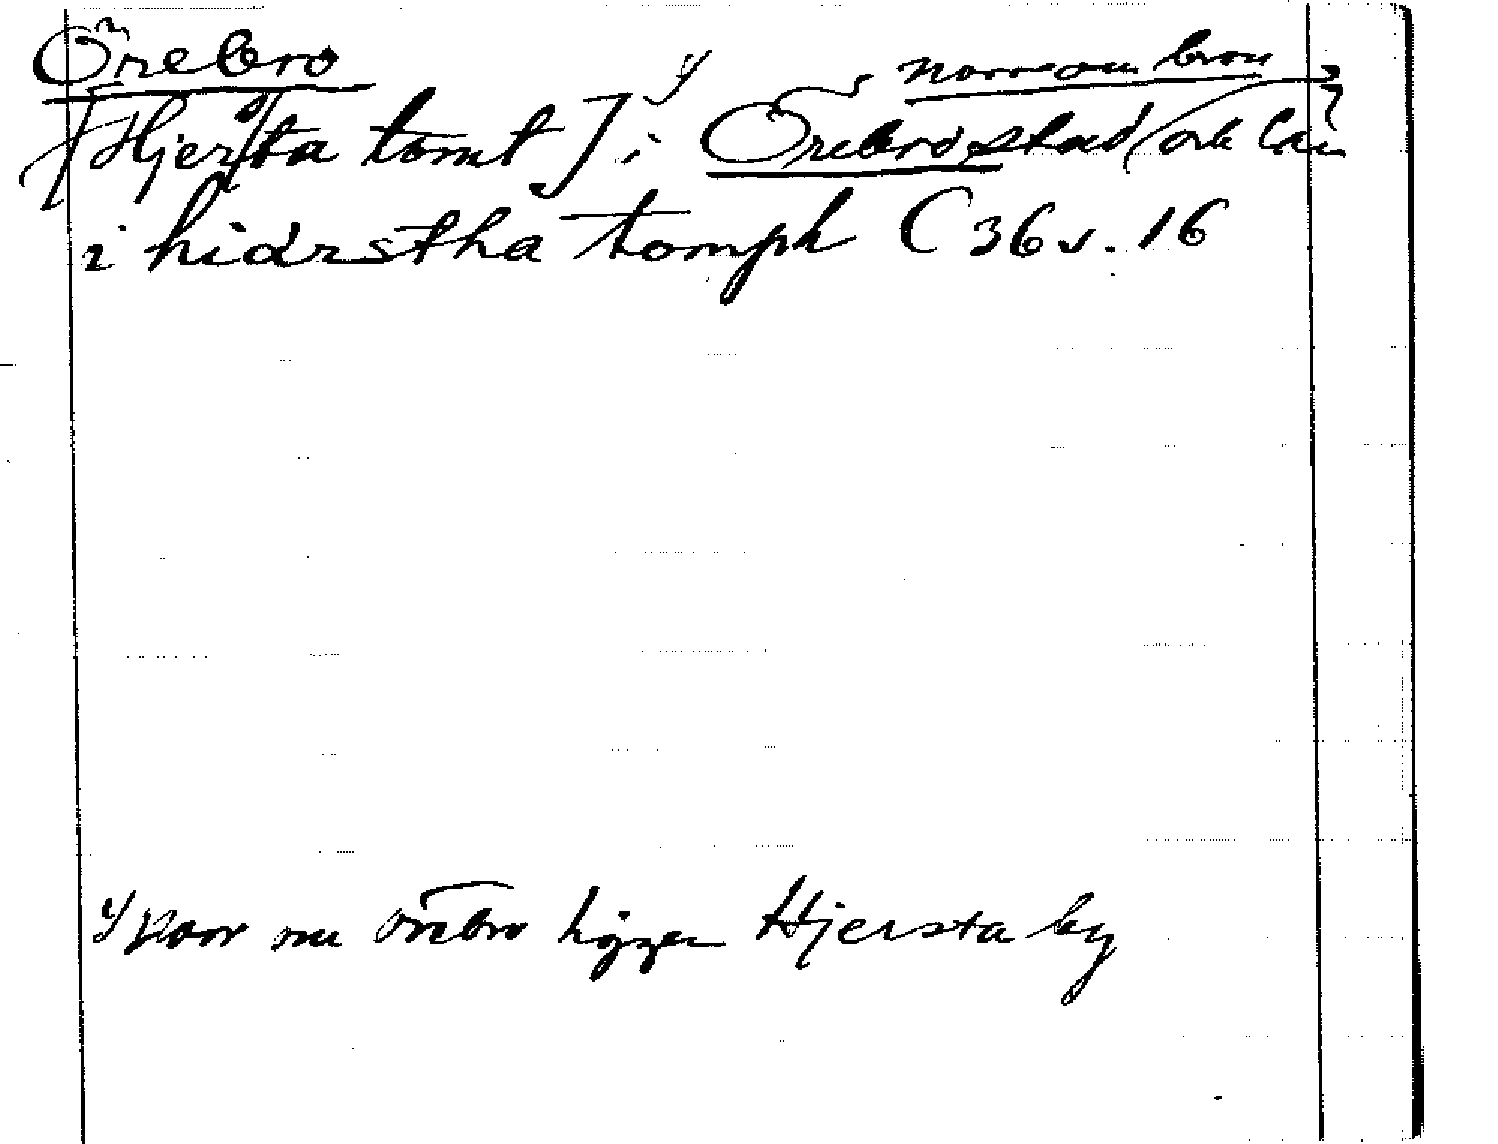 Örebro
norr om bron
[Hjersta tomt] i Örebro stad och län
i hidrstha tomph C 36 v. 16
Norr om Örebro ligger Hjersta by